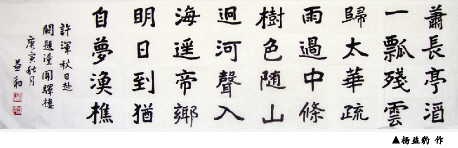 蕭長亭酒
一瓢殘雲
歸太華疏
雨過中條
樹色随山
迥河聲入
海遥帝鄉
明日到猶
自夢漁樵
許渾秋日赴
闕題潼関驛樓
庚寅秋月
益豹
▲楊益豹 作